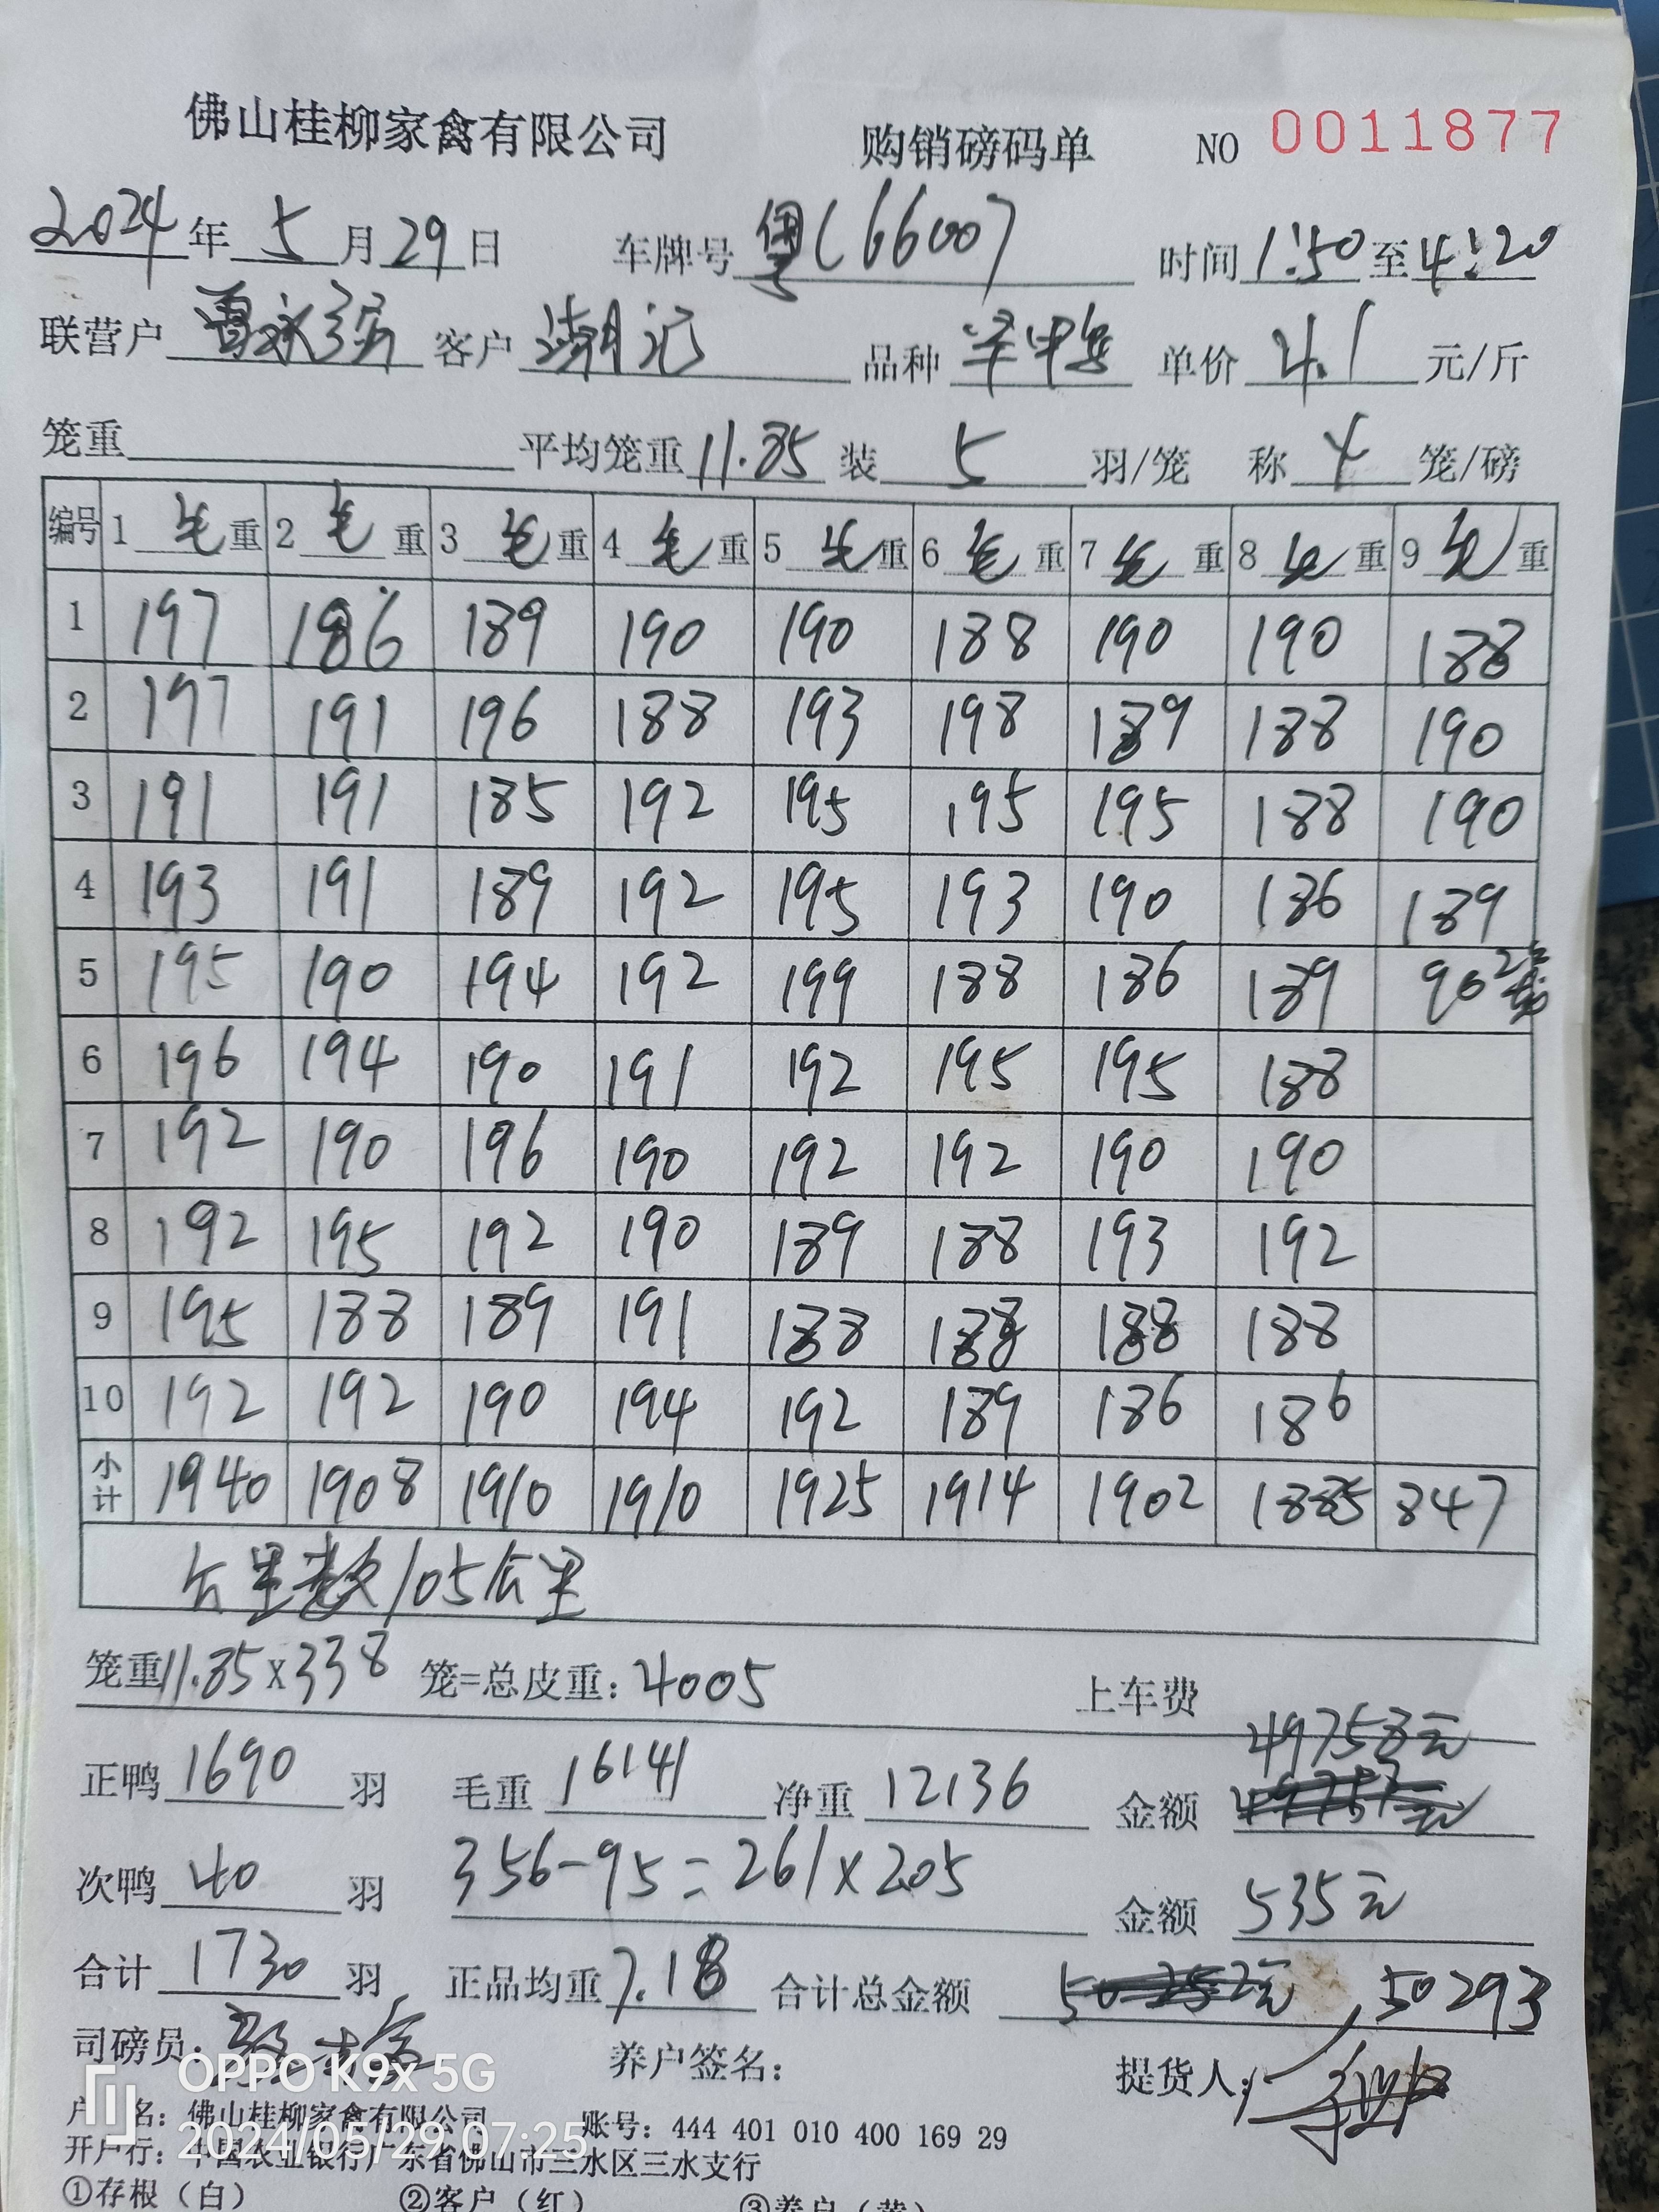 佛山桂柳家禽有限公司 购销磅码单 NO 0011877
2024年5月29日 车牌号粤C66007 时间1:50至4:20
联营户曾永强 客户潮记 品种 单价4.1元/斤
笼重 平均笼重11.85装5羽/笼 称4笼/磅
编号 1毛重 2毛重 3毛重 4毛重 5毛重 6毛重 7毛重 8毛重 9毛重
1 197 186 189 190 190 188 190 190 188
2 197 191 196 188 193 198 189 188 190
3 191 191 185 192 195 195 195 188 190
4 193 191 189 192 195 193 190 186 189
5 195 190 194 192 199 188 186 189 90 2笼
6 196 194 190 191 192 195 195 188
7 192 190 196 190 192 192 190 190
8 192 195 192 190 189 188 193 192
9 195 188 189 191 188 188 188 188
10 192 192 190 194 192 189 186 186
小计 1940 1908 1910 1910 1925 1914 1902 1885 847
公里数105公里
笼重11.85x338笼=总皮重:4005 上车费
49758元
正鸭1690羽 毛重16141净重12136 金额
次鸭40羽 356-95=261x205 金额535元
合计1730羽 正品均重7.18合计总金额 50293
司磅员: 养户签名: 提货人:
OPPO K9x 5G
户 名:佛山桂柳家禽有限公司 账号:444 401 010 400 169 29
2024/05/29 07:25
开户行:中国农业银行广东省佛山市三水区三水支行
①存根(白) ②客户(红) ③养户(黄)